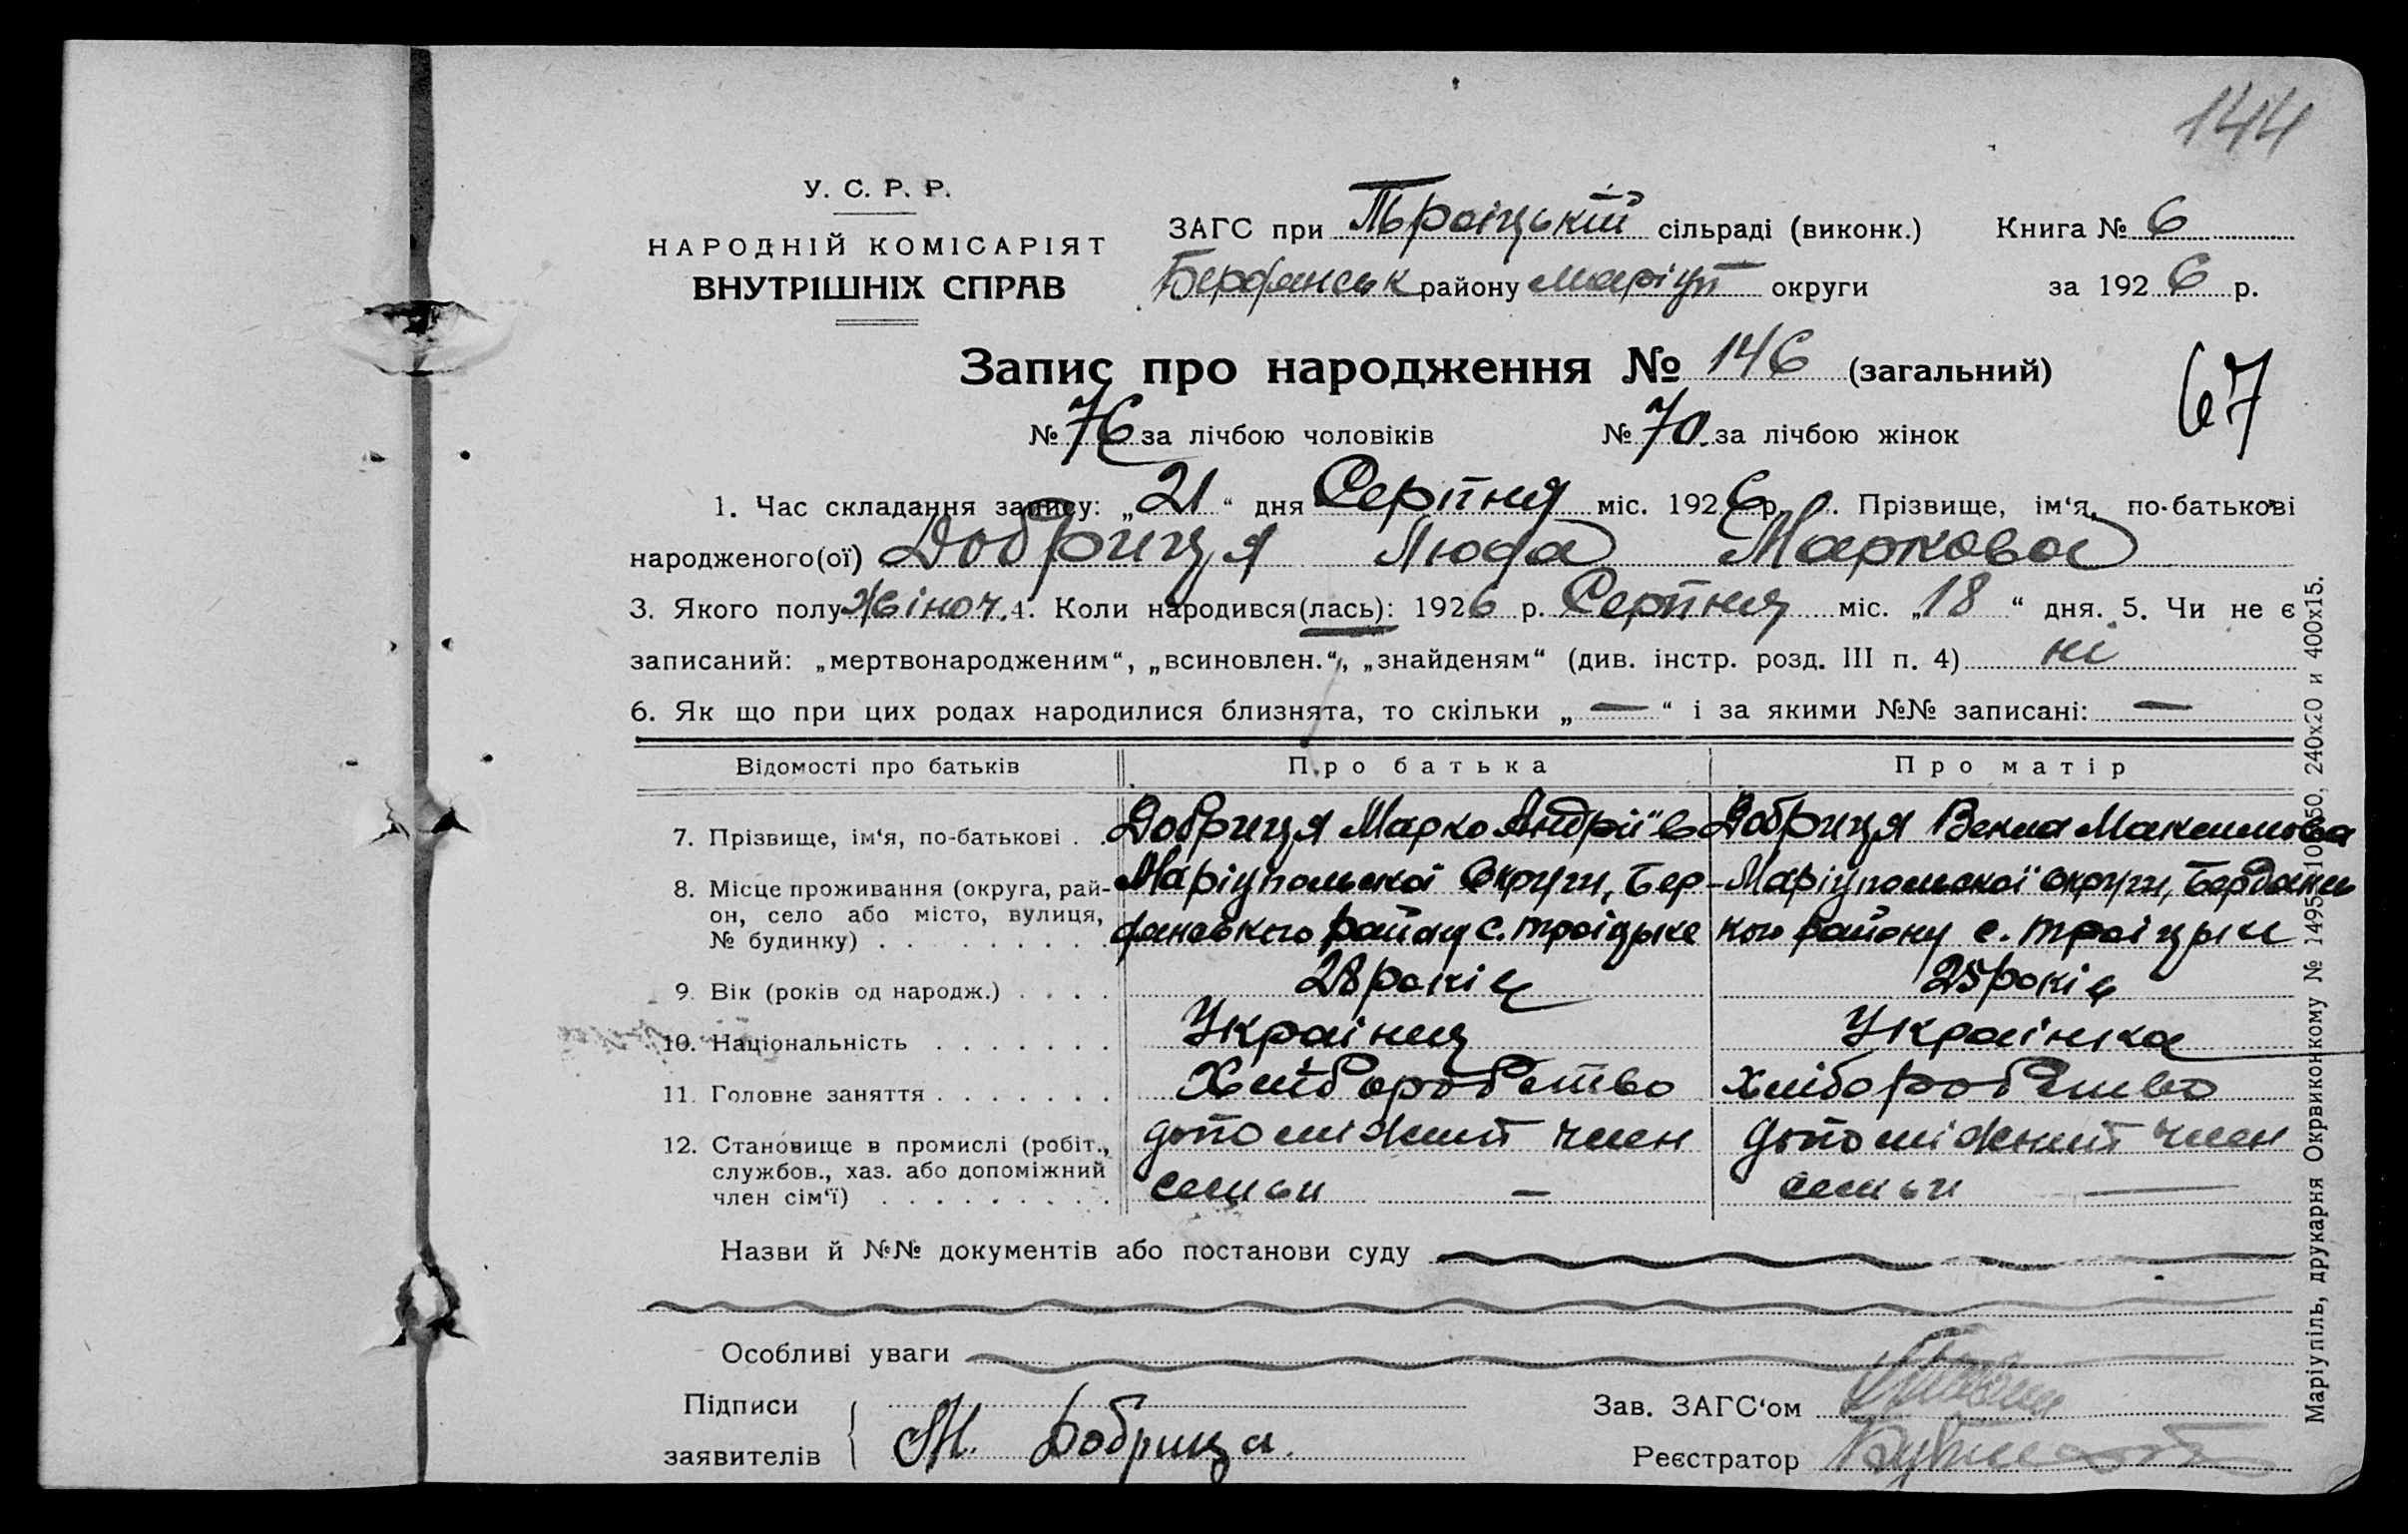 144
У. С. Р. Р.
НАРОДНІЙ КОМІСАРІЯТ
ВНУТРІШНІХ СПРАВ
ЗАГС при Троіцькій сільраді (виконк.) Книга № 6
Бердянськ району Маріуп округи за 1926 р.
Запис про народження № 146 (загальний)
67
№ 76 за лічбою чоловіків № 70. за лічбою жінок
1. Час складання запису: „21“ дня Серпня міс. 1926 р. Прізвище, ім‘я, по-батькові
народженого(ої) Добриця Люда Маркова
3. Якого полу Жіноч. 4. Коли народився(лась): 1926 р. Серпня міс. „18“ дня. 5. Чи не є
записаний: „мертвонародженим“, „всиновлен.“, „знайденям“ (див. інстр. розд. III п. 4) ні
6. Як що при цих родах народилися близнята, то скільки „—“ і за якими №№ записані: —
Відомості про батьків Про батька Про матір
7. Прізвище, ім‘я, по-батькові . . Добриця Марко Андріїв Добриця Векла Максимова
8. Місце проживання (округа, рай-
он, село або місто, вулиця,
№ будинку) . . . . . . . . .
Маріупольскої Округи, Бер-
дянського району с. Троіцьке
Маріупольскої округи, Бердянсь
кого району с. Троіцьке
9. Вік (років од народж.) . . . . 28 років 25 років
10. Національність . . . . . . . Украінец Украінка
11. Головне заняття . . . . . . . Хліборобство хліборобство
12. Становище в промислі (робіт.,
службов., хаз. або допоміжний
член сім‘ї) . . . . . . . . .
допоміжний член
семьи —
допоміжний член
семьи —
Назви й №№ документів або постанови суду
Особливі уваги
Підписи
заявителів
М. Добрица.
Зав. ЗАГС‘ом
Реєстратор
Маріупіль, друкарня Окрвиконкому № 1495 240х20 и 400х15.